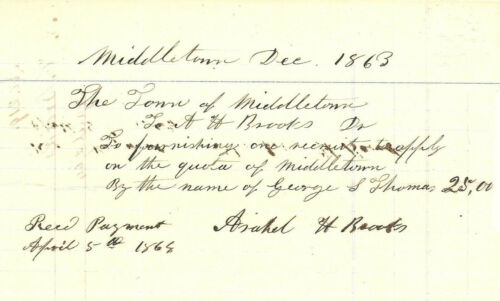 Middletown Dec. 1863
The Town of Middletown
To A H Brooks Dr
To furnishing one recruit to apply
on the quota of Middletown
By the name of George S Thomas 25,00
Recd Payment Asahel H Brooks
April 5th 1864